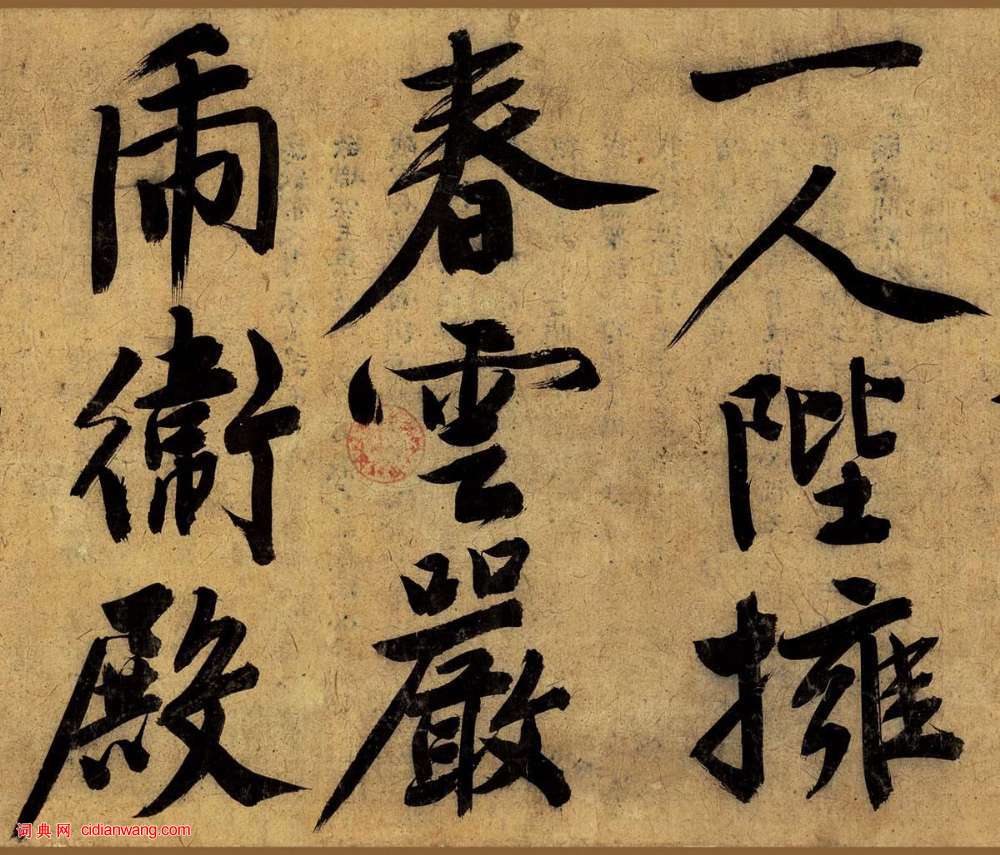 一人陛擁
春雲嚴
乕衛殿
词典网 cidianwang.com